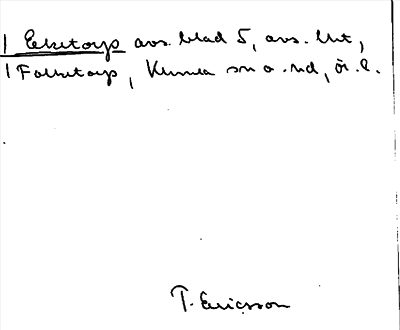 | Eketorp avs. blad 5, avs. Ut,
| Falketorp, Kumla sn o. hd, Ör. l.
T. Ericsson